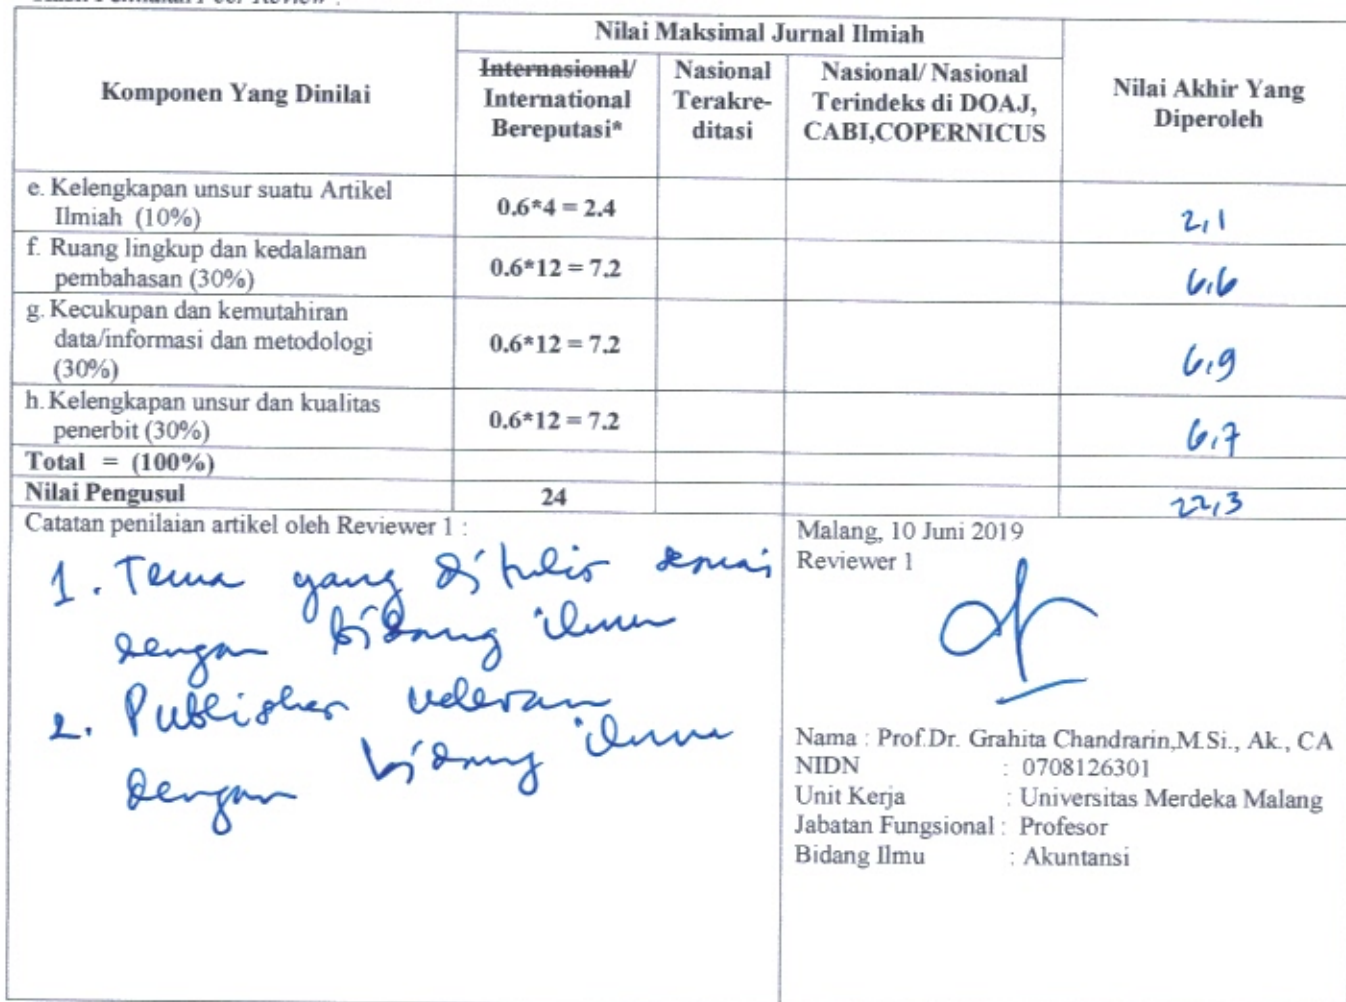 Nilai Maksimal Jurnal Ilmiah
Komponen Yang Dinilai
Internasional/
International
Bereputasi*
Nasional
Terakre-
ditasi
Nasional/ Nasional
Terindeks di DOAJ,
CABI,COPERNICUS
Nilai Akhir Yang
Diperoleh
e. Kelengkapan unsur suatu Artikel
Ilmiah (10%)
0.6*4 = 2.4
2,1
f. Ruang lingkup dan kedalaman
pembahasan (30%)
0.6*12 = 7.2
6,6
g. Kecukupan dan kemutahiran
data/informasi dan metodologi
(30%)
0.6*12 = 7.2
6,9
h. Kelengkapan unsur dan kualitas
penerbit (30%)
0.6*12 = 7.2
6,7
Total = (100%)
Nilai Pengusul
24
22,3
Catatan penilaian artikel oleh Reviewer 1 :
1. Tema yang ditulis sesuai
dengan bidang ilmu
2. Publisher relevan
dengan bidang ilmu
Malang, 10 Juni 2019
Reviewer 1
Nama : Prof.Dr. Grahita Chandrarin,M.Si., Ak., CA
NIDN : 0708126301
Unit Kerja : Universitas Merdeka Malang
Jabatan Fungsional : Profesor
Bidang Ilmu : Akuntansi